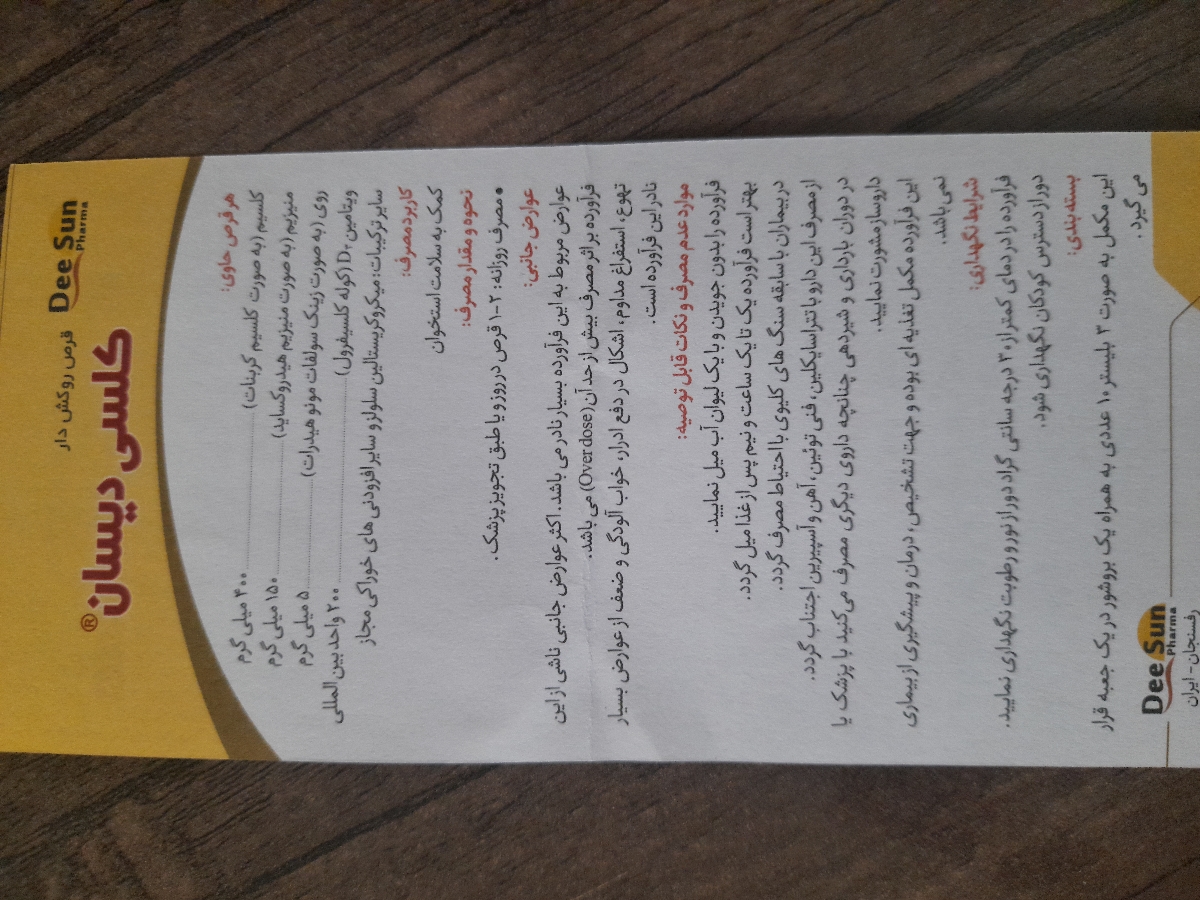 قرص روکش دار
کلسی دیسان®
Dee Sun
Pharma
هر قرص حاوی:
کلسیم (به صورت کلسیم کربنات) ........ ۴۰۰ میلی گرم
منیزیم (به صورت منیزیم هیدروکساید) ........ ۱۵۰ میلی گرم
روی (به صورت زینک سولفات مونو هیدرات) ........ ۵ میلی گرم
ویتامین D₃ (کوله کلسیفرول) ........ ۲۰۰ واحد بین المللی
سایر ترکیبات: میکروکریستالین سلولز و سایر افزودنی های خوراکی مجاز
کاربرد مصرف:
کمک به سلامت استخوان
نحوه و مقدار مصرف:
• مصرف روزانه: ۲-۱ قرص در روز و یا طبق تجویز پزشک.
عوارض جانبی:
عوارض مربوط به این فرآورده بسیار نادر می باشد. اکثر عوارض جانبی ناشی از این
فرآورده بر اثر مصرف بیش از حد آن (Overdose) می باشد.
تهوع، استفراغ مداوم، اشکال در دفع ادرار، خواب آلودگی و ضعف از عوارض بسیار
نادر این فرآورده است.
موارد عدم مصرف و نکات قابل توصیه:
فرآورده را بدون جویدن و با یک لیوان آب میل نمایید.
بهتر است فرآورده یک تا یک ساعت و نیم پس از غذا میل گردد.
در بیماران با سابقه سنگ های کلیوی با احتیاط مصرف گردد.
از مصرف این دارو با تتراسایکلین، فنی توئین، آهن و آسپیرین اجتناب گردد.
در دوران بارداری و شیردهی چنانچه داروی دیگری مصرف می‌کنید با پزشک یا
داروساز مشورت نمایید.
این فرآورده مکمل تغذیه ای بوده و جهت تشخیص، درمان و پیشگیری از بیماری
نمی باشد.
شرایط نگهداری:
فرآورده را در دمای کمتر از ۳۰ درجه سانتی گراد دور از نور و رطوبت نگهداری نمایید.
دور از دسترس کودکان نگهداری شود.
بسته بندی:
این مکمل به صورت ۳ بلیستر ۱۰ عددی به همراه یک بروشور در یک جعبه قرار
می گیرد.
Dee Sun
Pharma
رفسنجان - ایران